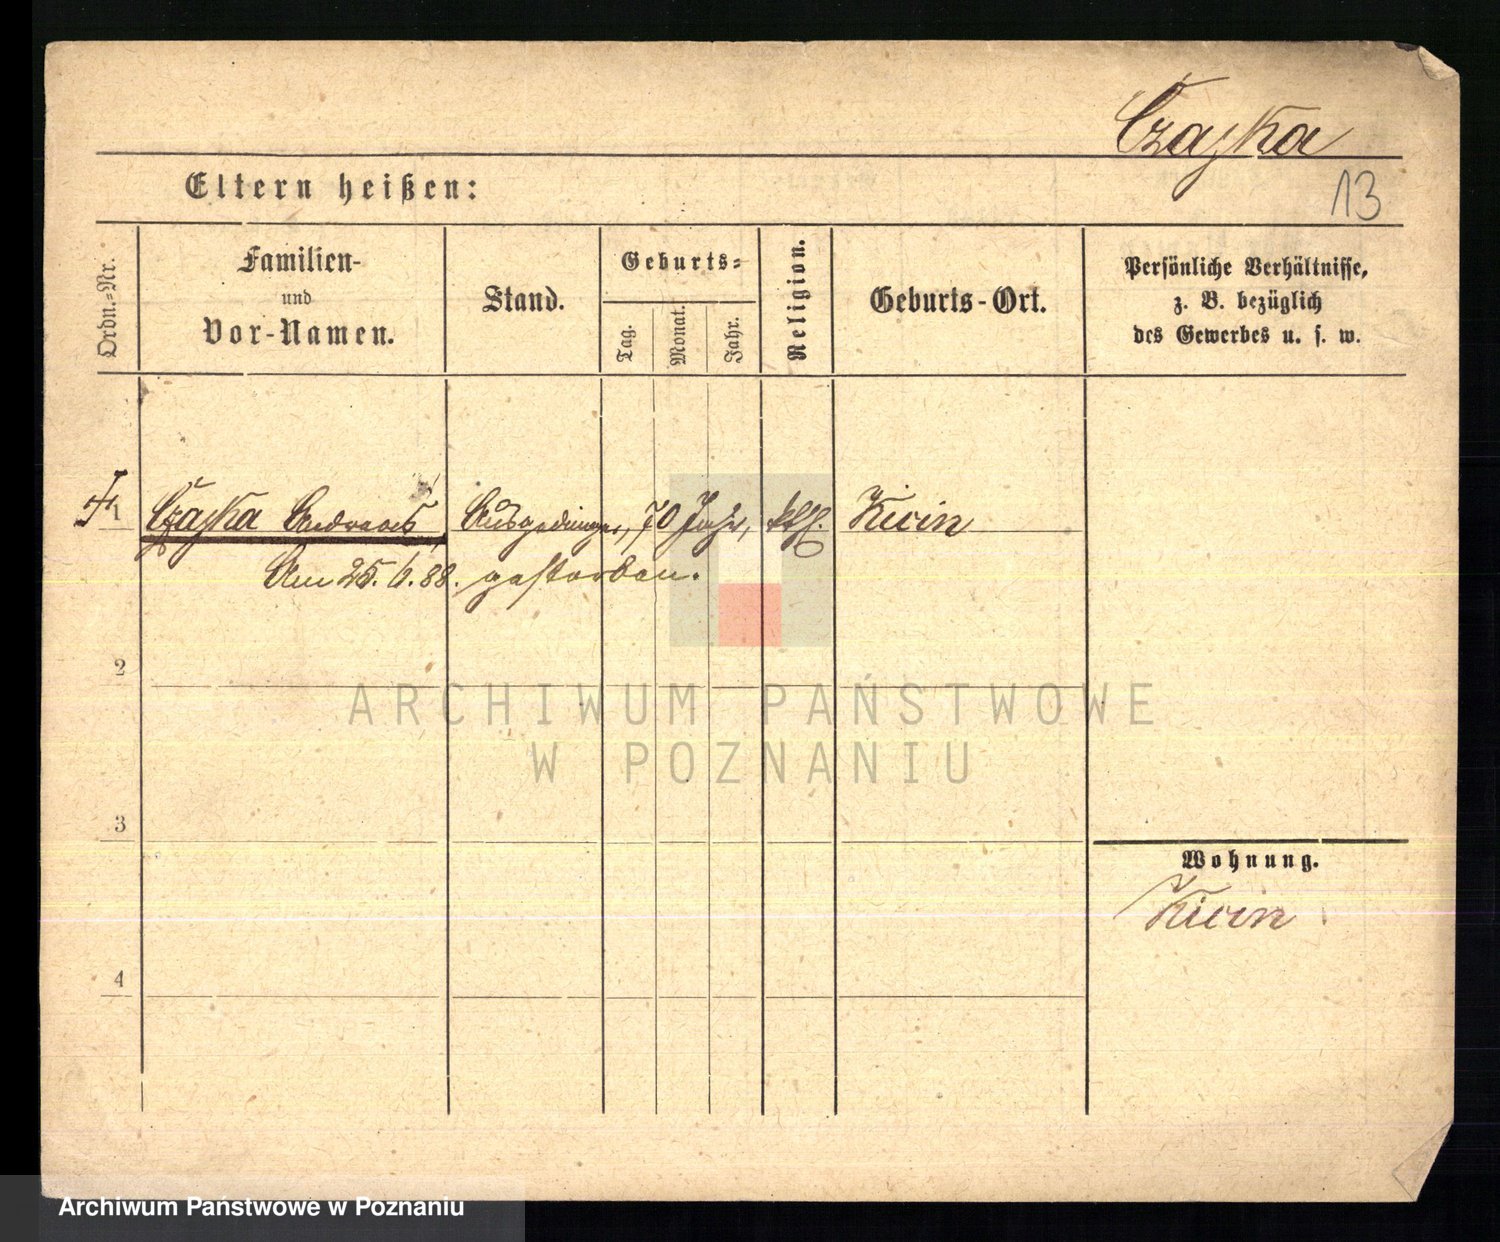 Czayka
Eltern heißen:
13
Ordn.-Nr.
Familien-
und
Vor-Namen.
Stand.
Geburts-
Tag.
Monat.
Jahr.
Religion.
Geburts-Ort.
Persönliche Verhältnisse,
z. B. bezüglich
des Gewerbes u. s. w.
1 Czayka Andreas, Ausgedinger, 70 Jahr, kath. Kicin
Am 25. 6. 88. gestorben.
2
ARCHIWUM PAŃSTWOWE
W POZNANIU
3
Wohnung.
Kicin
4
Archiwum Państwowe w Poznaniu